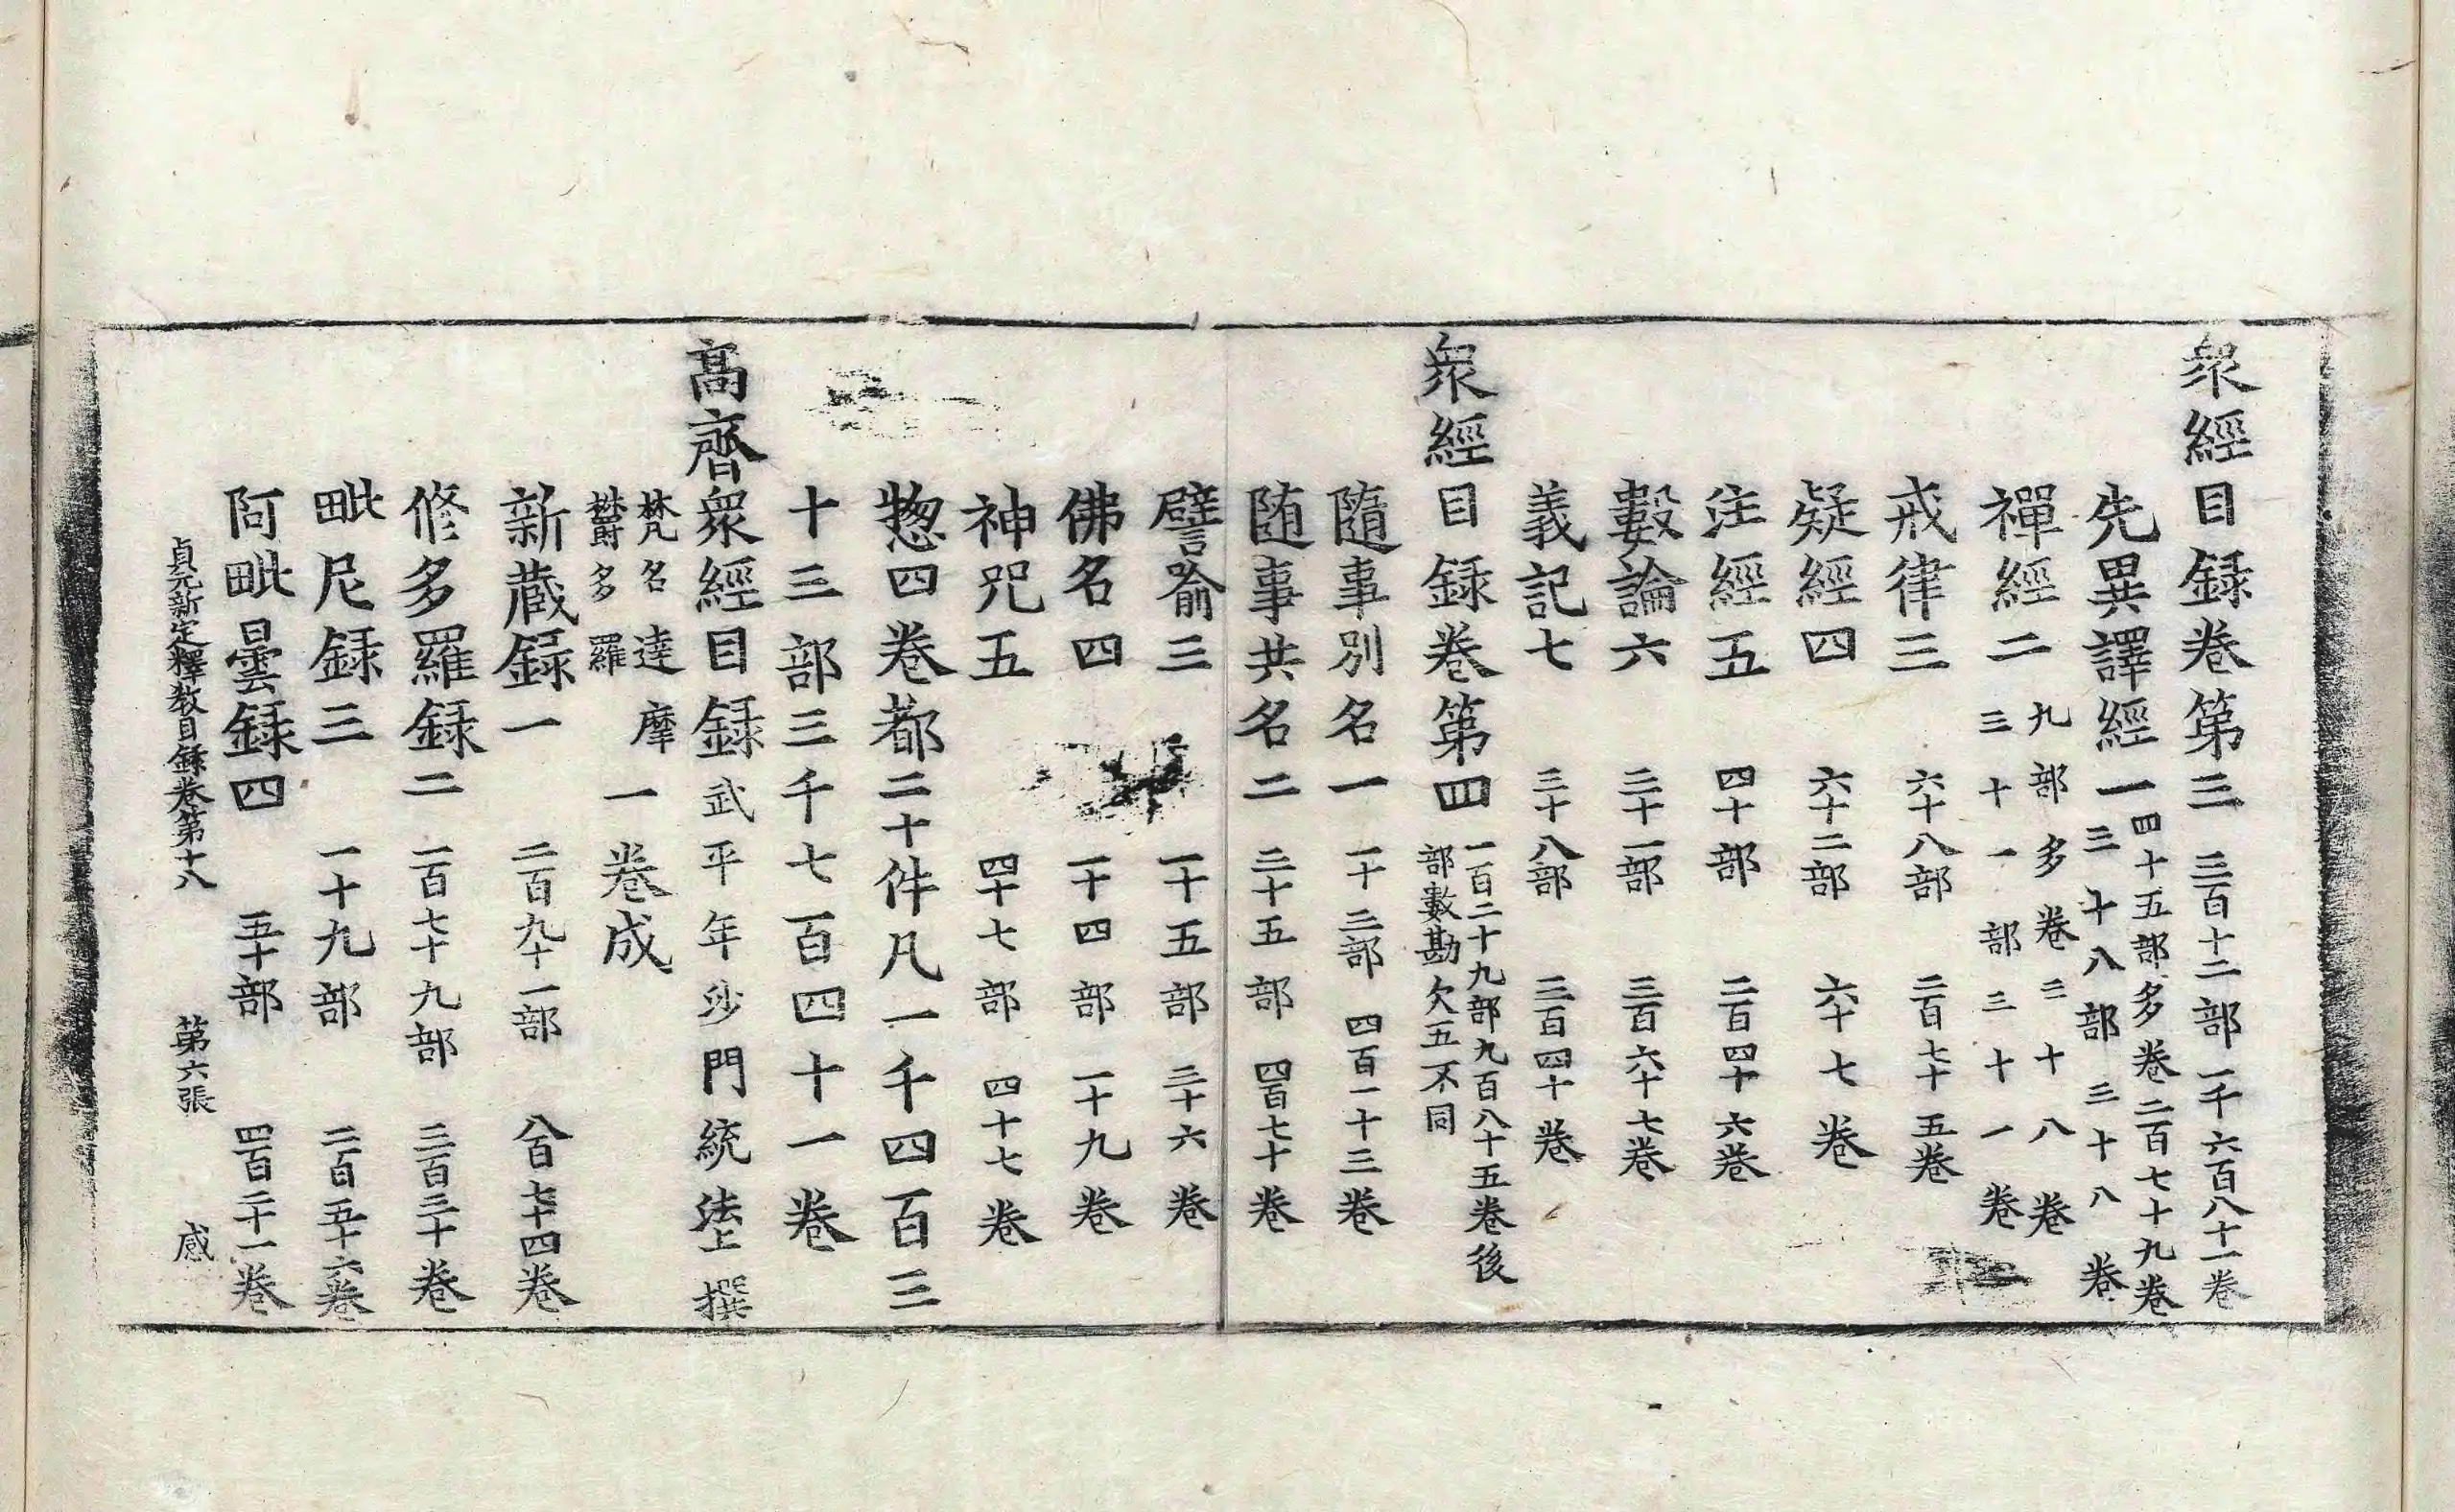 衆經目録卷第三 三百十二部一千六百八十一卷
先異譯經一 四十五部多卷二百七十九卷
三十八部三十八卷
禪經二 九部多卷三十八卷
三十一部三十一卷
戒律三 六十八部 二百七十五卷
疑經四 六十二部 六十七卷
注經五 四十部 二百四十六卷
數論六 三十一部 三百六十七卷
義記七 三十八部 三百四十卷
衆經目録卷第四 一百二十九部九百八十五卷後
部數勘欠五不同
隨事別名一 一十三部 四百一十三卷
随事共名二 三十五部 四百七十卷
譬喻三 一十五部 三十六卷
佛名四 一十四部 一十九卷
神咒五 四十七部 四十七卷
惣四卷都二十件凡一千四百三
十三部三千七百四十一卷
髙齊衆經目録 武平年沙門統法上撰
梵名達摩
欝多羅 一卷成
新蔵録一 二百九十一部 八百七十四卷
修多羅録二 一百七十九部 三百三十卷
毗尼録三 一十九部 二百五十六卷
阿毗曇録四 五十部 四百二十一卷
貞元新定釋教目録卷第十八 第六張 感